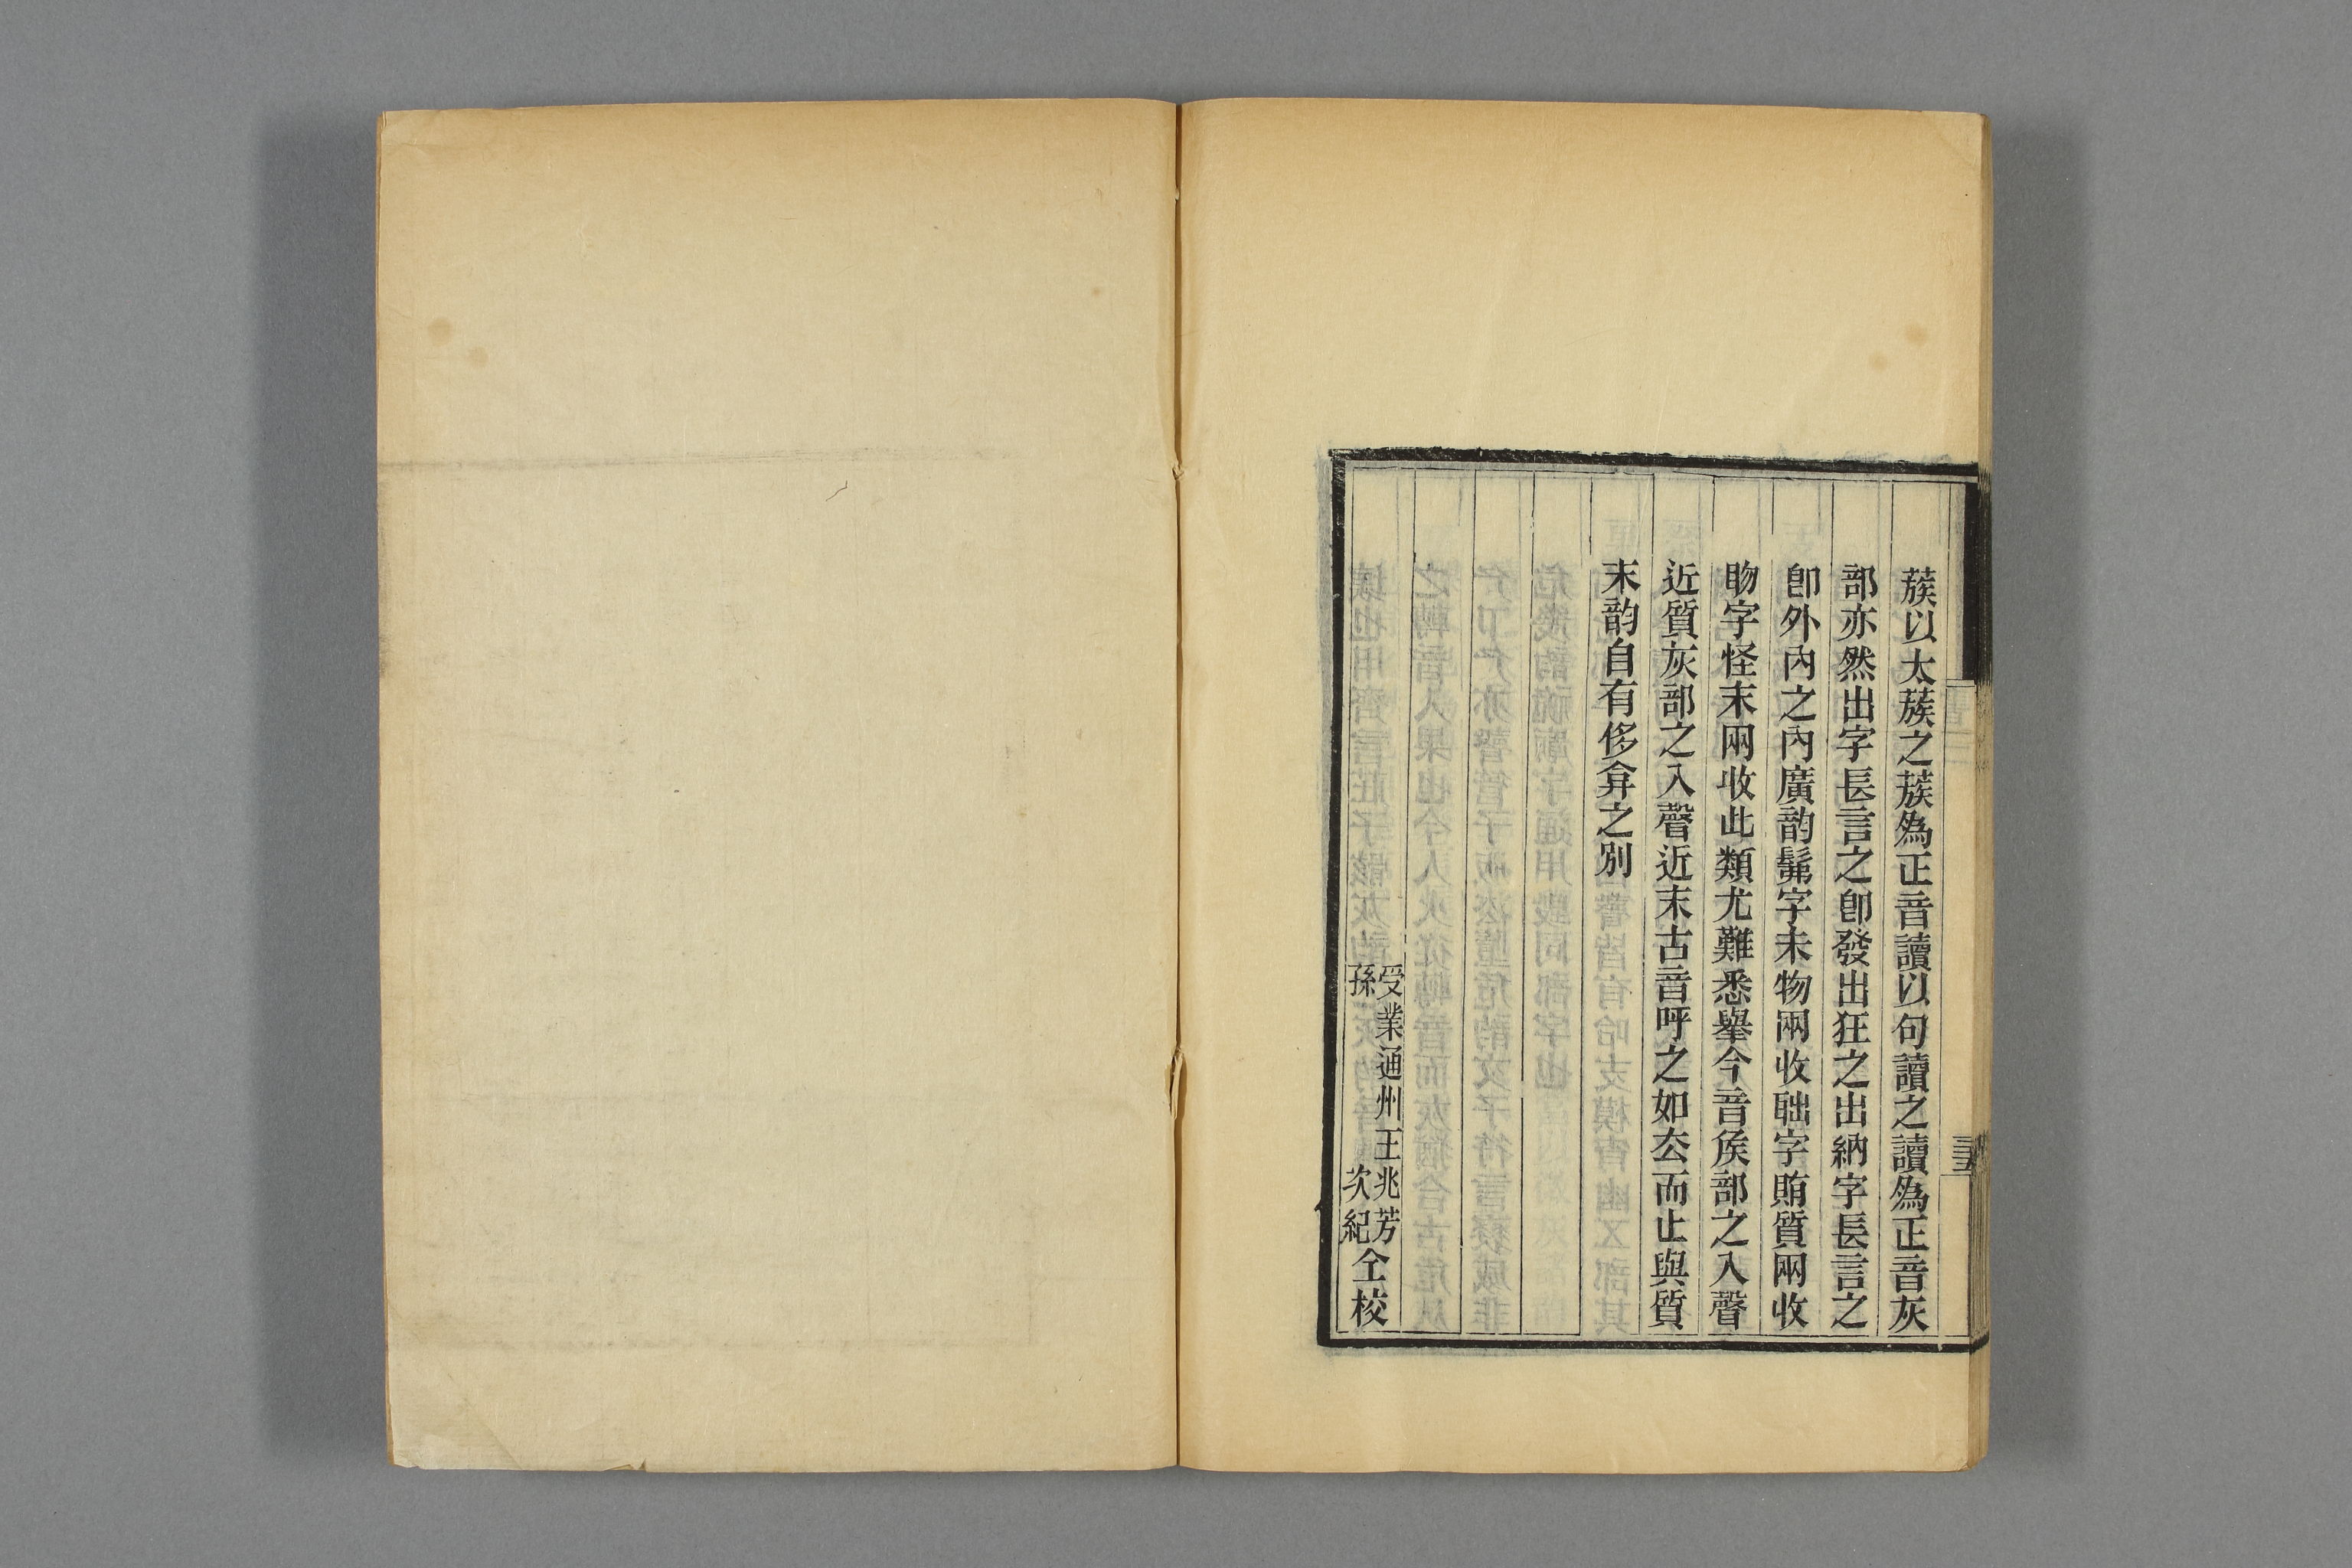 蔟以太蔟之蔟為正音讀以句讀之讀為正音灰
部亦然出字長言之卽發出狂之出納字長言之
卽外內之內廣韵髴字未物兩收聉字賄質兩收
眒字怪末兩收此類尤難悉舉今音矦部之入聲
近質灰部之入聲近末古音呼之如厺而止與質
末韵自有侈弇之別
受業通州王兆芳
孫次紀
仝校